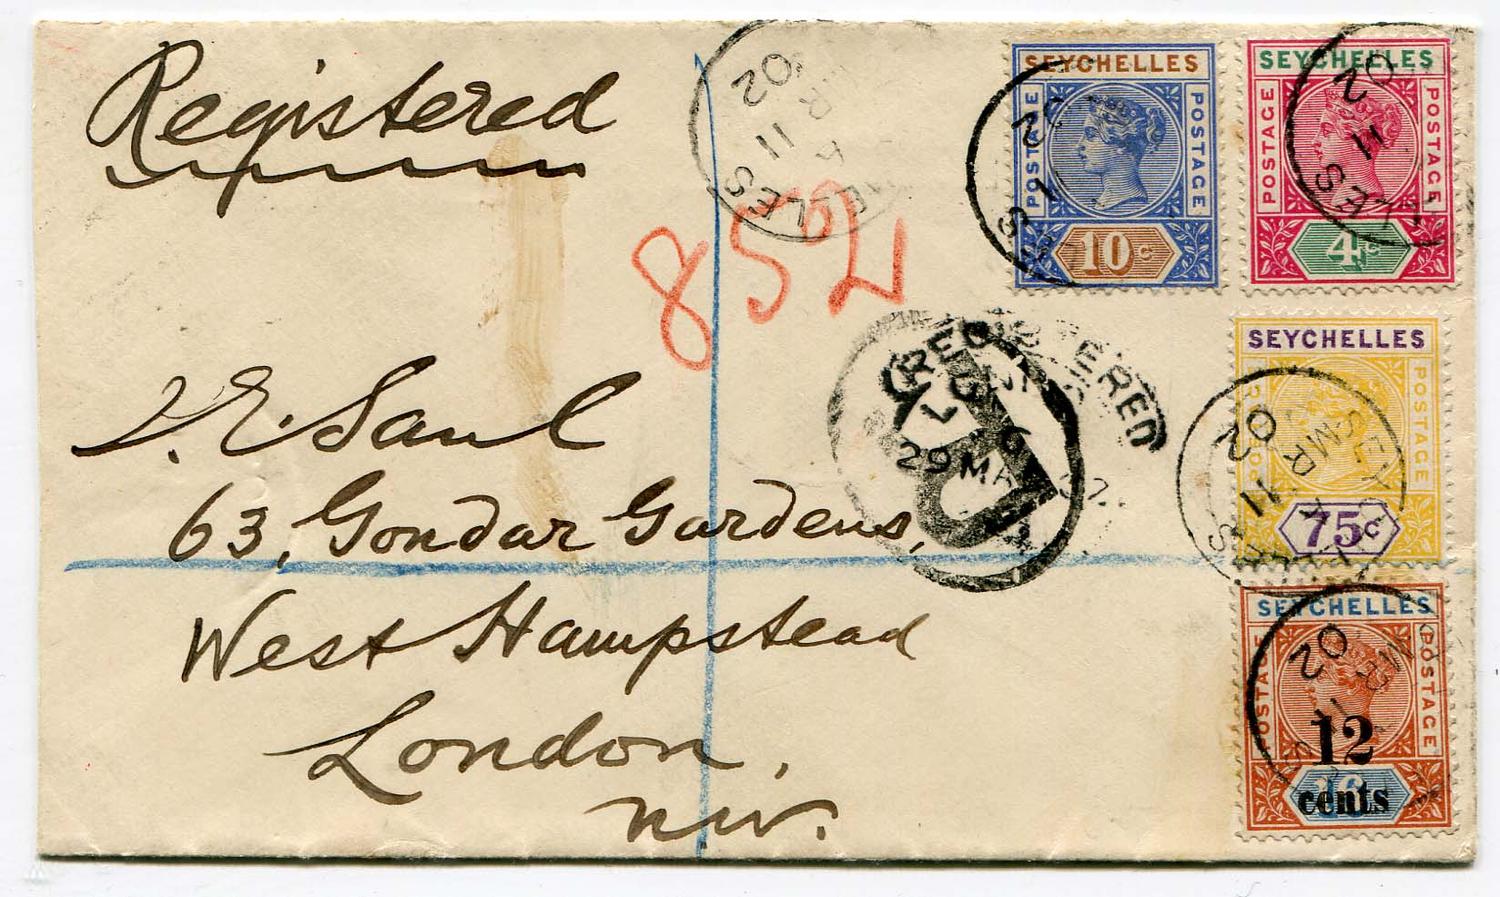 Registered
852
V. E. Saul
63, Gondar Gardens,
West Hampstead
London,
NW.
SEYCHELLES
POSTAGE
POSTAGE
10c
SEYCHELLES
POSTAGE
POSTAGE
4c
SEYCHELLES
POSTAGE
75c
SEYCHELLES
POSTAGE
POSTAGE
12
cents
MR 11
02
MR 11
02
29 MR